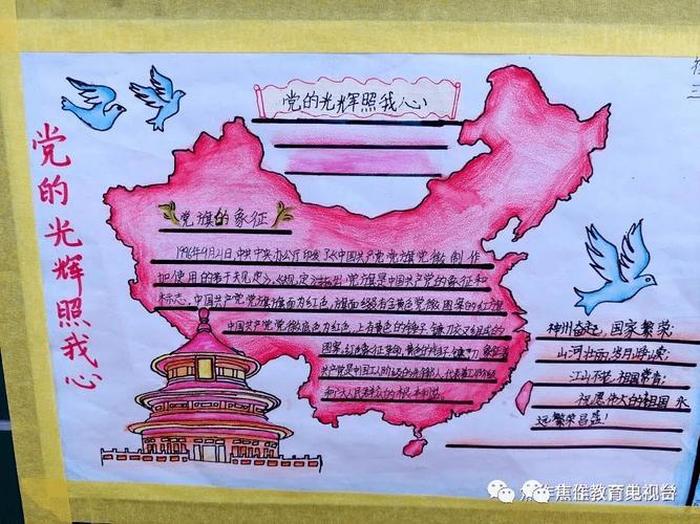 党的光辉照我心
党的光辉照我心
党旗的象征
1996年9月21日,中共中央办公厅印发了《中国共产党党旗党徽制作
和使用的若干规定》,《规定》党旗是中国共产党的象征和
标志。中国共产党党旗旗面为红色,旗面缀有金黄色党徽图案的红旗
中国共产党党徽底色为红色,上有黄色的锤子、镰刀交叉组成的
图案,红色象征革命,黄色的锤子、镰刀
共产党是中国工人阶级的先锋队,代表着工人阶级
和广大人民群众的根本利益。
神州奋起,国家繁荣;
山河壮丽,岁月峥嵘;
江山不老,祖国常青;
祝愿伟大的祖国永
远繁荣昌盛!
三
焦作教育电视台